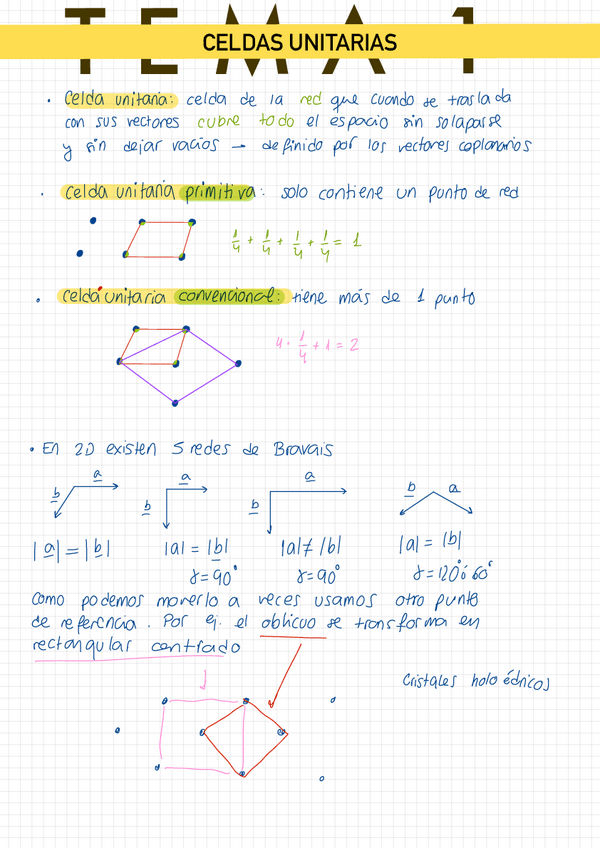 TEMA 1
CELDAS UNITARIAS
• Celda unitaria: celda de la red que cuando se traslada
con sus vectores cubre todo el espacio sin solaparse
y sin dejar vacíos → definido por los vectores coplanarios
• Celda unitaria primitiva: solo contiene un punto de red
1/4 + 1/4 + 1/4 + 1/4 = 1
• Celda unitaria convencional: tiene más de 1 punto
4 · 1/4 + 1 = 2
• En 2D existen 5 redes de Bravais
a a a
b b b b a
|a| = |b| |a| = |b| |a| ≠ |b| |a| = |b|
γ = 90° γ = 90° γ = 120° ó 60°
Como podemos moverlo a veces usamos otro punto
de referencia. Por ej. el oblicuo se transforma en
rectangular centrado
Cristales holoédricos